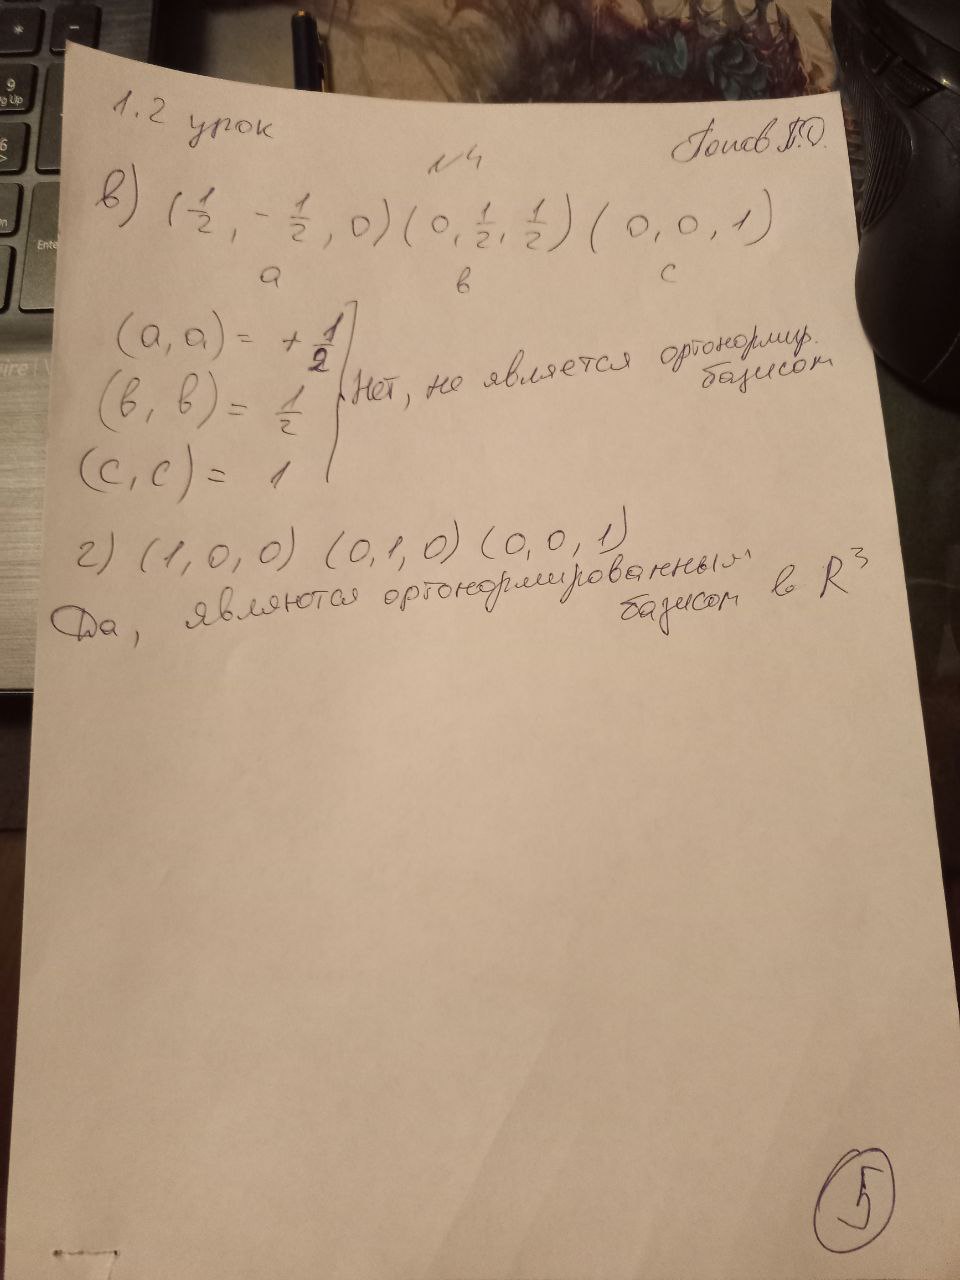 1.2 урок
Попов П.О.
№4
в) (1/2, - 1/2, 0) (0, 1/2, 1/2) ( 0, 0, 1)
а в с
(а, а) = + 1/2
(в, в) = 1/2
(с, с) = 1
Нет, не является ортонормир.
базисом
г) (1, 0, 0) (0, 1, 0) (0, 0, 1)
Да, являются ортонормированным
базисом в R³
5